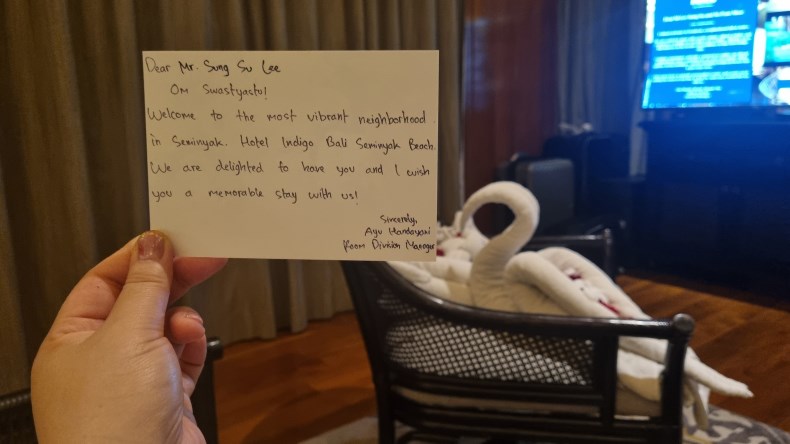 Dear Mr. Sung Su Lee
Om Swastyastu!
Welcome to the most vibrant neighborhood
in Seminyak. Hotel Indigo Bali Seminyak Beach.
We are delighted to have you and I wish
you a memorable stay with us!
Sincerely,
Ayu Handayani
Room Division Manager